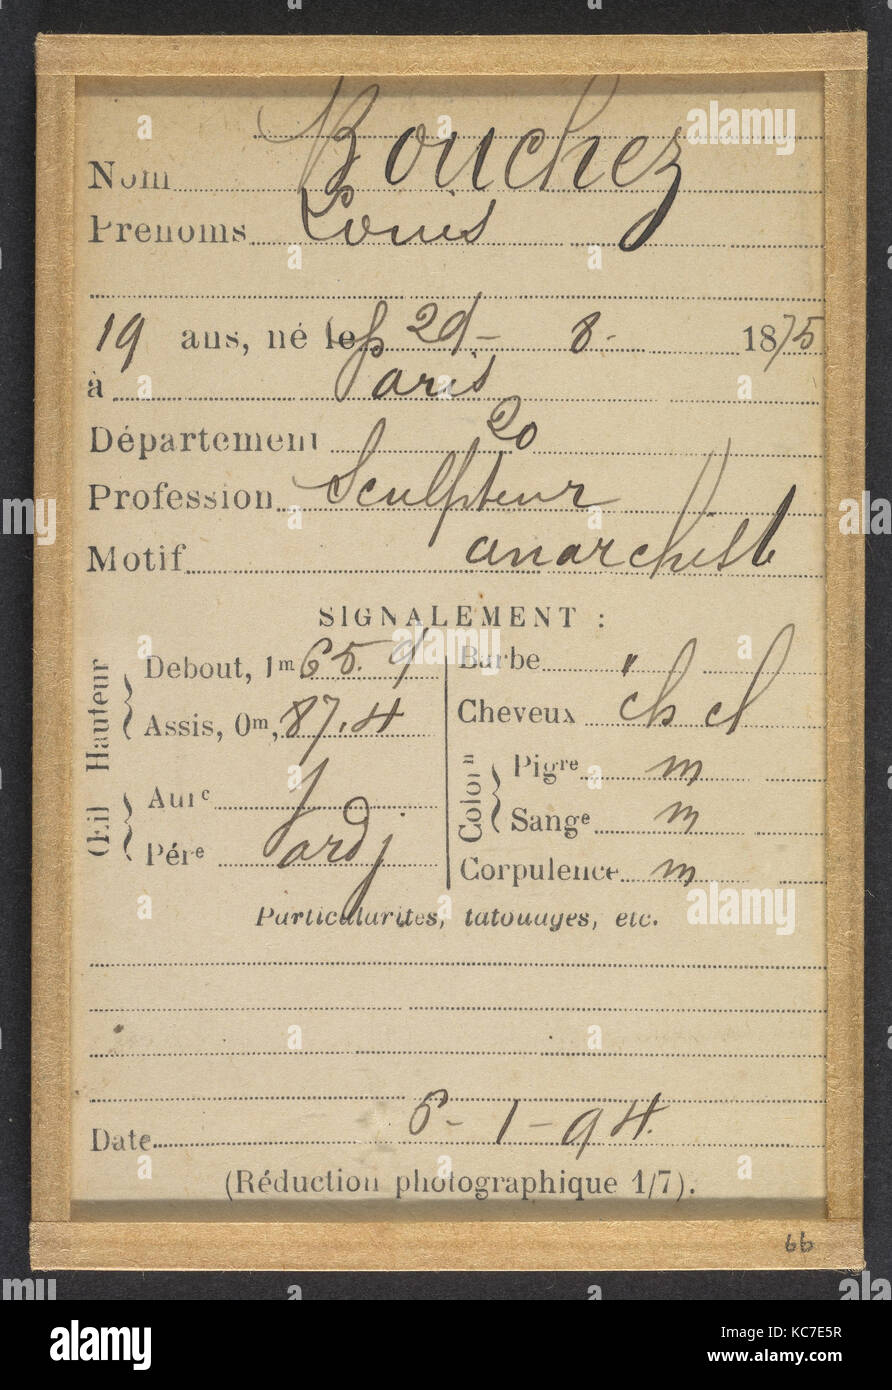 Nom Bouchez
Prénoms Louis
19 ans, né le 29 - 8 - 1875
à Paris
Département 20
Profession Sculpteur
Motif anarchiste
SIGNALEMENT :
Hauteur
Debout, 1m 65.9
Assis, 0m, 87.4
Œil
Aurc
Pére
Barbe "
Cheveux ch
Colorn
Pigre m
Sange m
Corpulence m
Particularités, tatouages, etc.
Date 6 - 1 - 94.
(Réduction photographique 1/7).
66
alamy
Image ID: KC7E5R
www.alamy.com